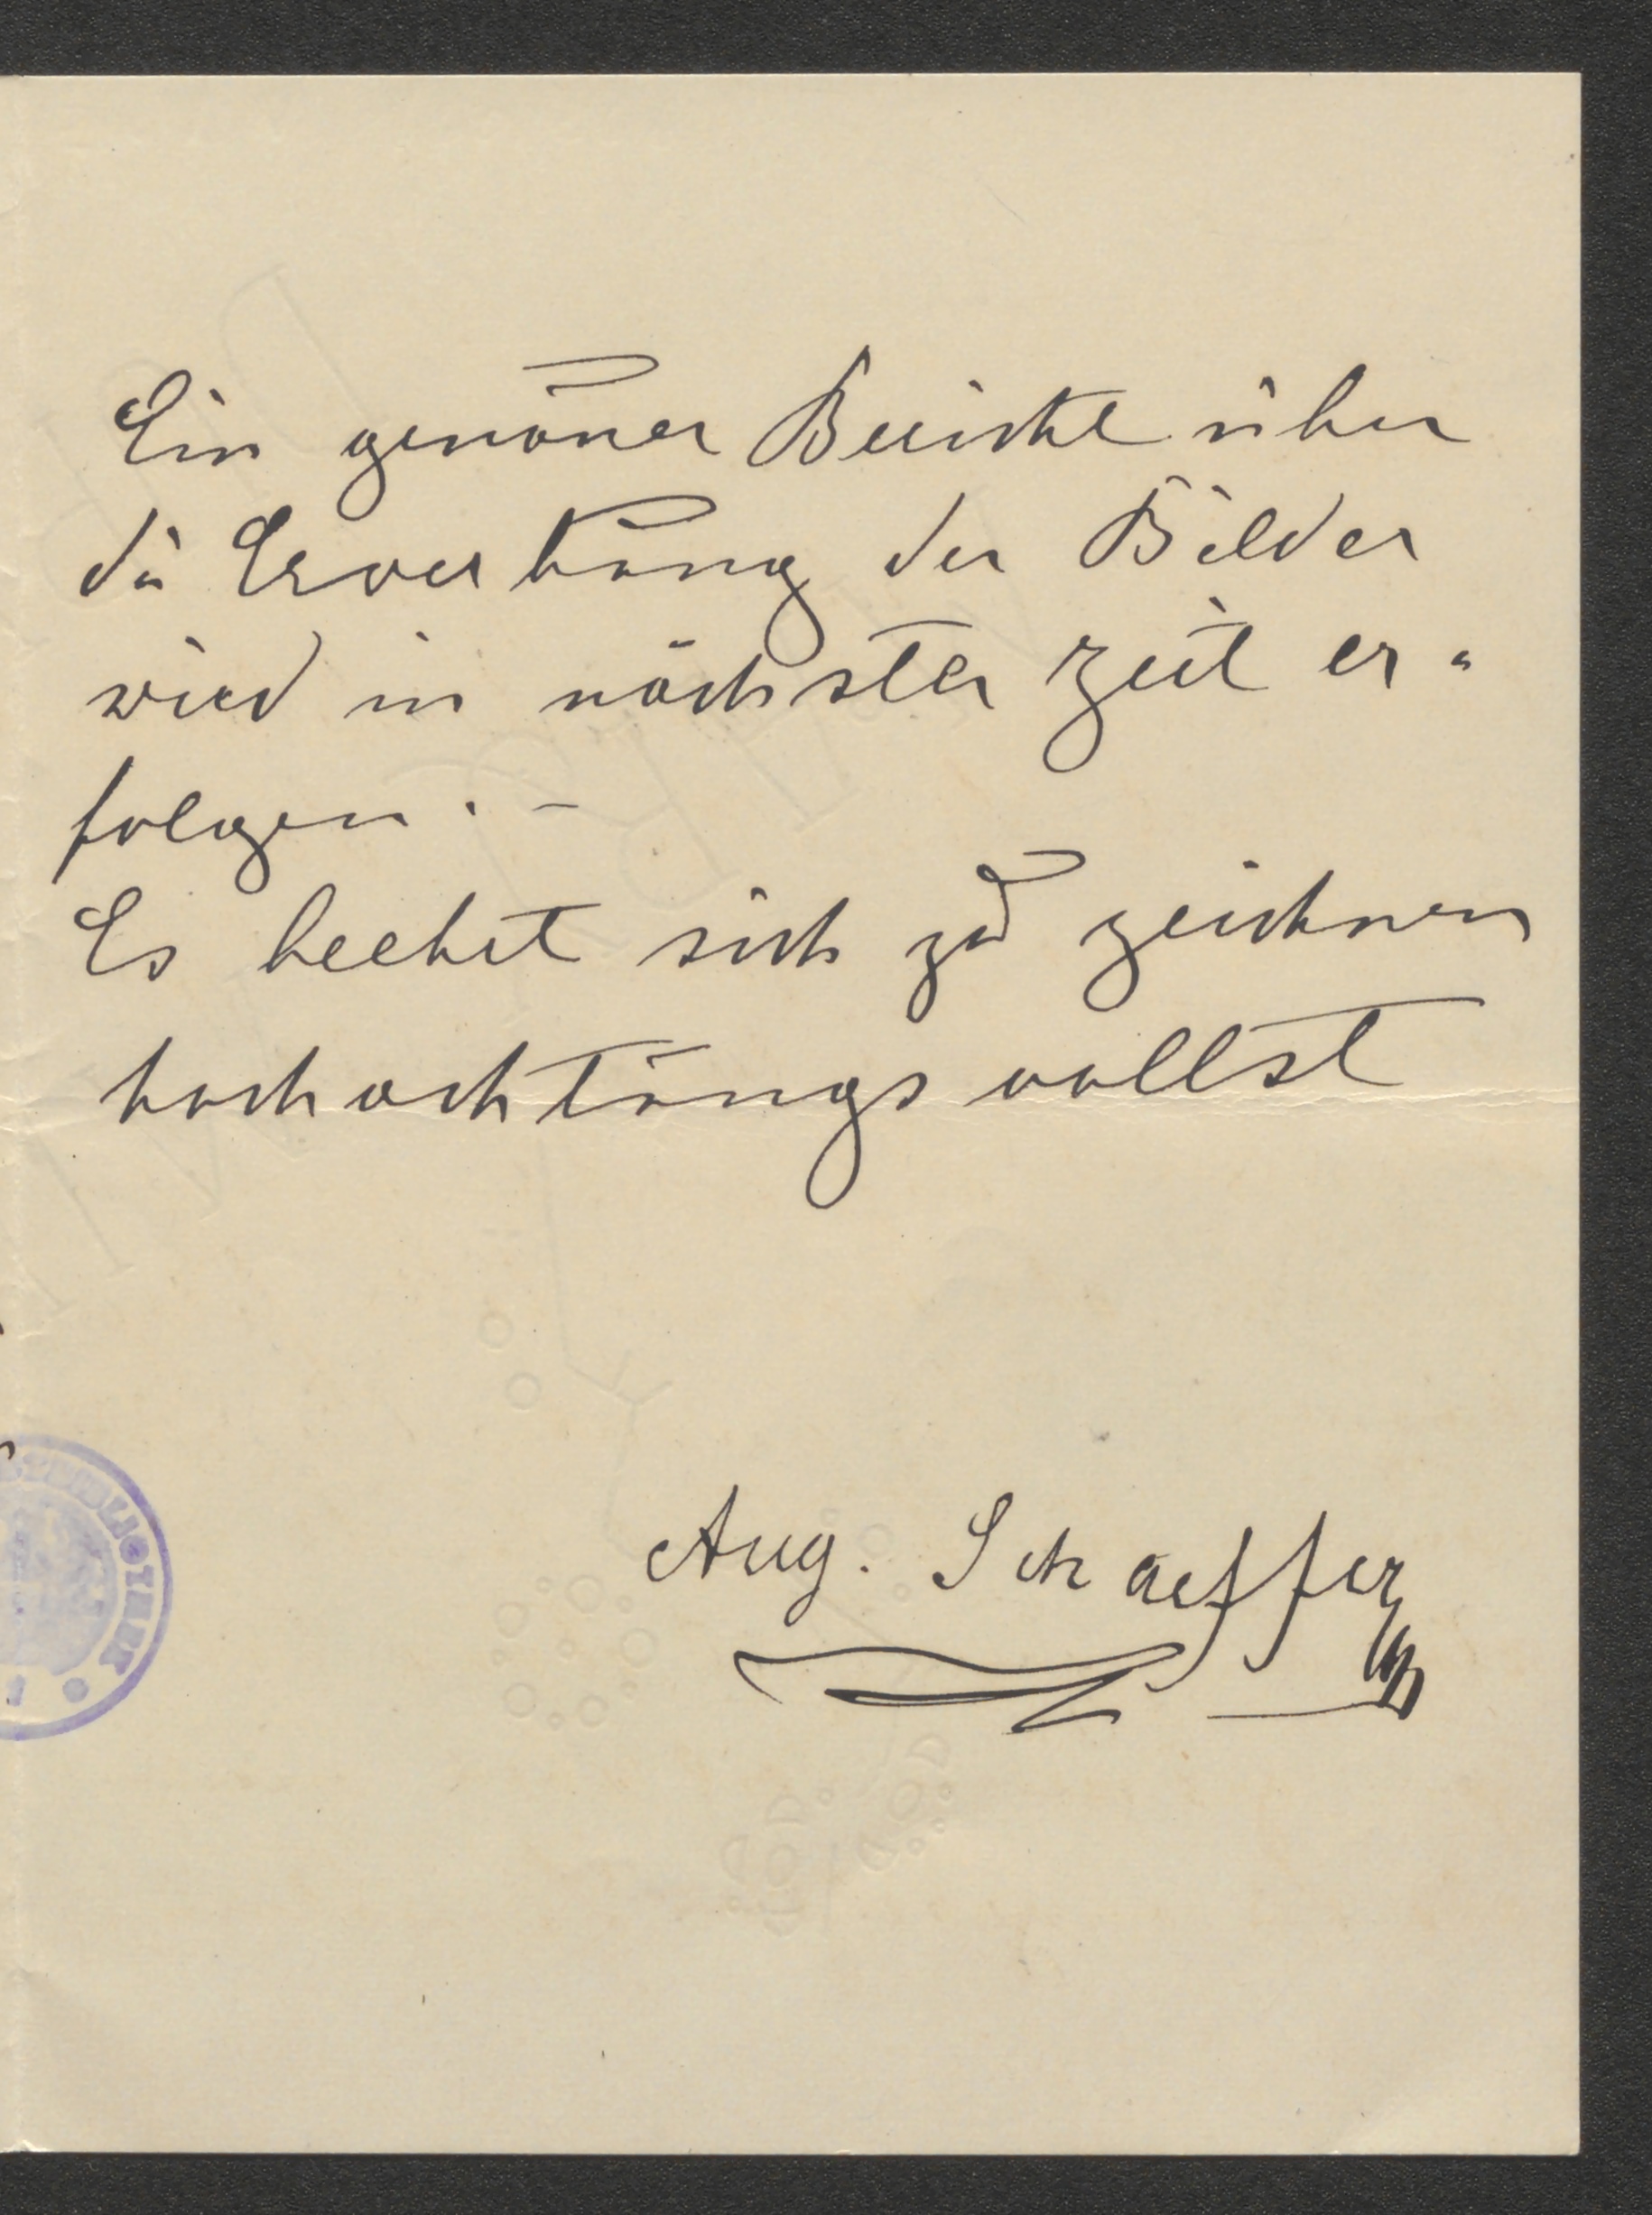 Ein genauer Bericht über
die Erwerbung der Bilder
wird in nächster Zeit er-
folgen. –
Es beehrt sich zu zeichnen
hochachtungsvollst
Aug. Schaeffer